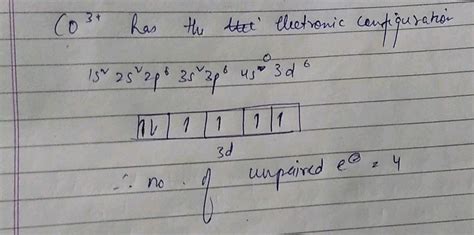 Co³⁺ has the electronic configuration
1s² 2s² 2p⁶ 3s² 3p⁶ 4s⁰ 3d⁶
↑↓ ↑ ↑ ↑ ↑
3d
∴ no. of unpaired e⊖ = 4